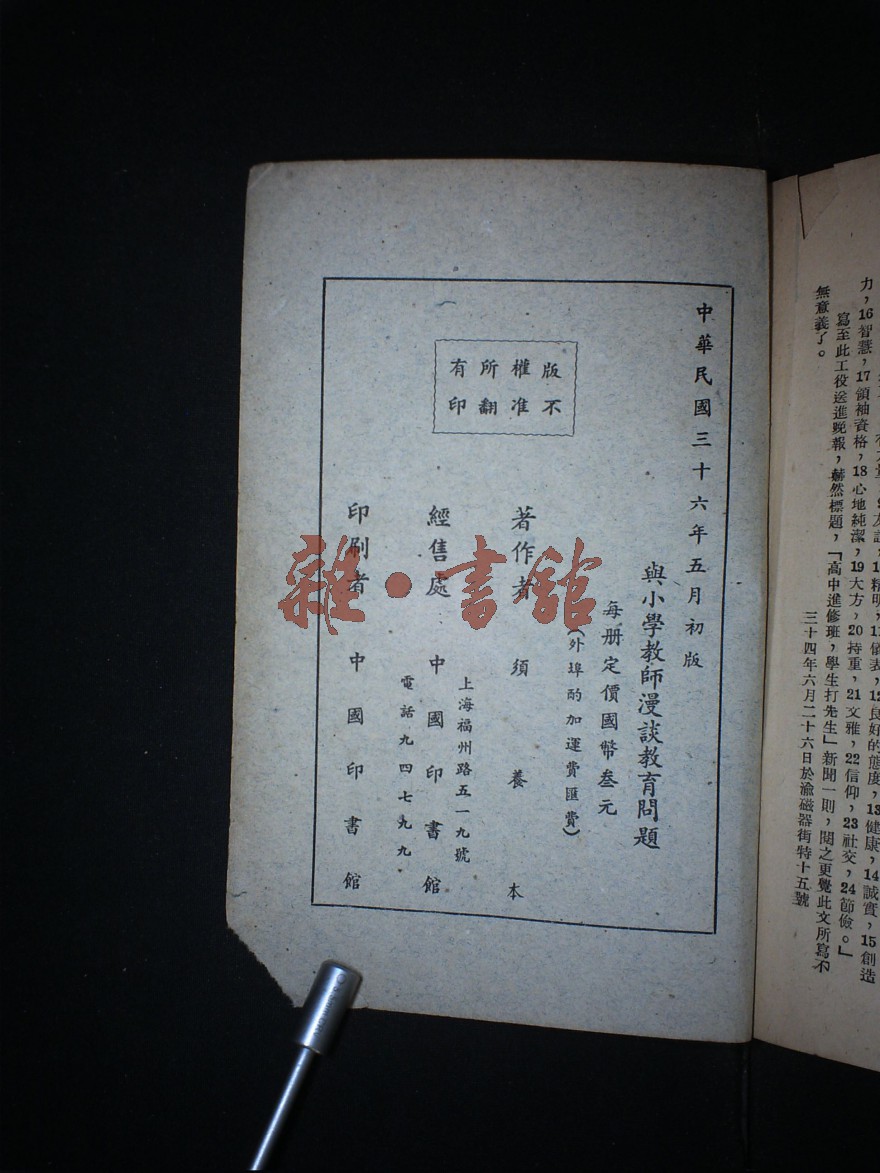 力，16智慧，17領袖資格，18心地純潔，19大方，20持重，21文雅，22信仰，23社交，24節儉。」
寫至此工役送進晚報，赫然標題，「高中進修班，學生打先生」新聞一則，閱之更覺此文所寫不
無意義了。
三十四年六月二十六日於渝磁器街特十五號
精明，11儀表，12良好的態度，13健康，14誠實，15創造
中華民國三十六年五月初版
與小學教師漫談教育問題
每册定價國幣叁元
(外埠酌加運費匯費)
版權所有
不准翻印
著作者 須養本
上海福州路五一九號
經售處 中國印書館
電話九四七九九
印刷者 中國印書館
雜·書館